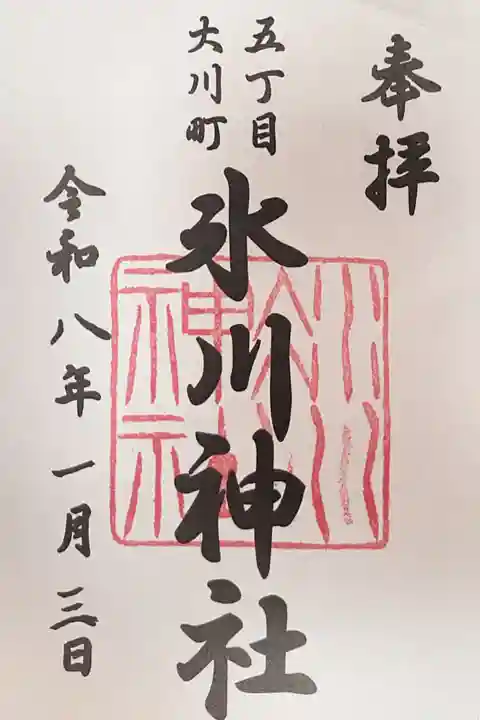 奉拝
五丁目
大川町
氷川神社
令和八年一月三日